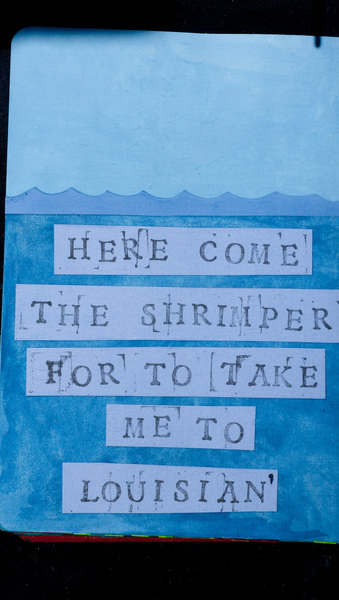 HERE COME
THE SHRIMPER
FOR TO TAKE
ME TO
LOUISIAN'